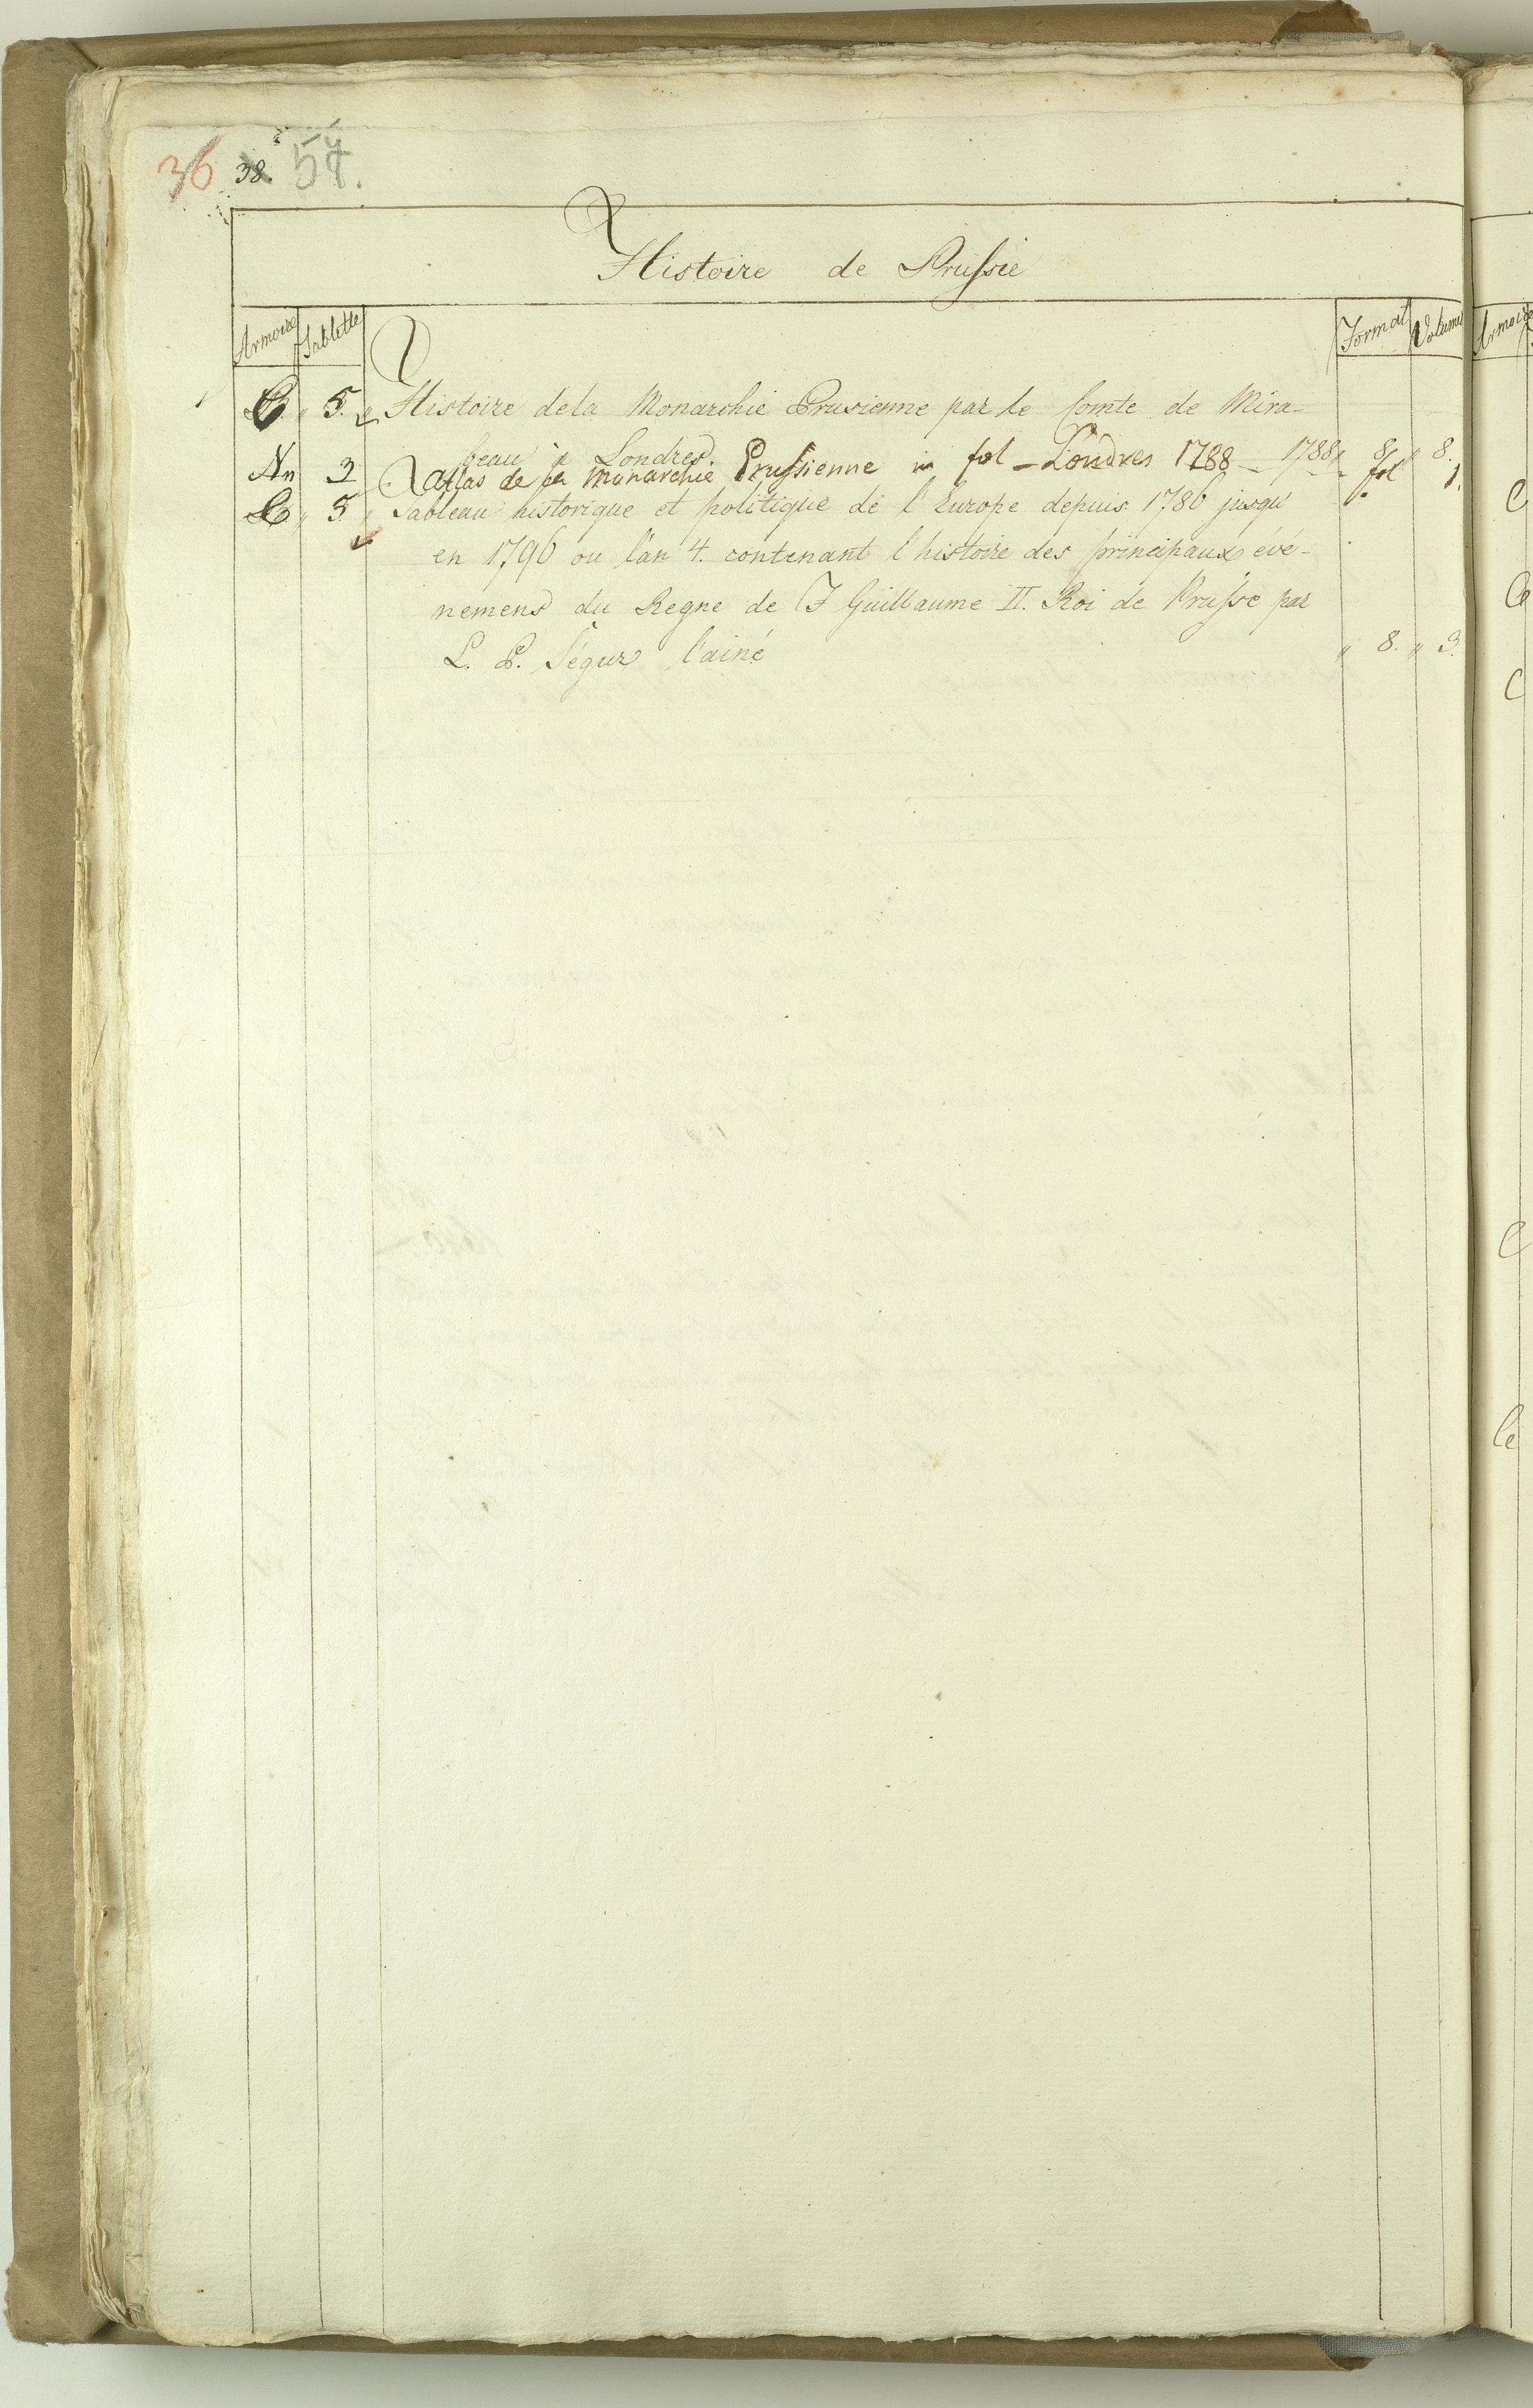 36 38. 54.
Histoire de Prussie
Armoire Tablette Format Volume Armoire
5. Histoire dela Monarchie Prusienne par le Comte de Mira-
beau à Londres. 1788 8. 8.
Nn 3 Atlas de la Monarchie Prussienne in fol - Londres 1788 - fol 1.
5. Tableau historique et politique de l'Europe depuis 1786 jusqu'
en 1796 ou l'an 4. contenant l'histoire des principaux évé-
nemens du Regne de F Guillaume II. Roi de Prusse par
L. P. Ségur l'ainé " 8. " 3.